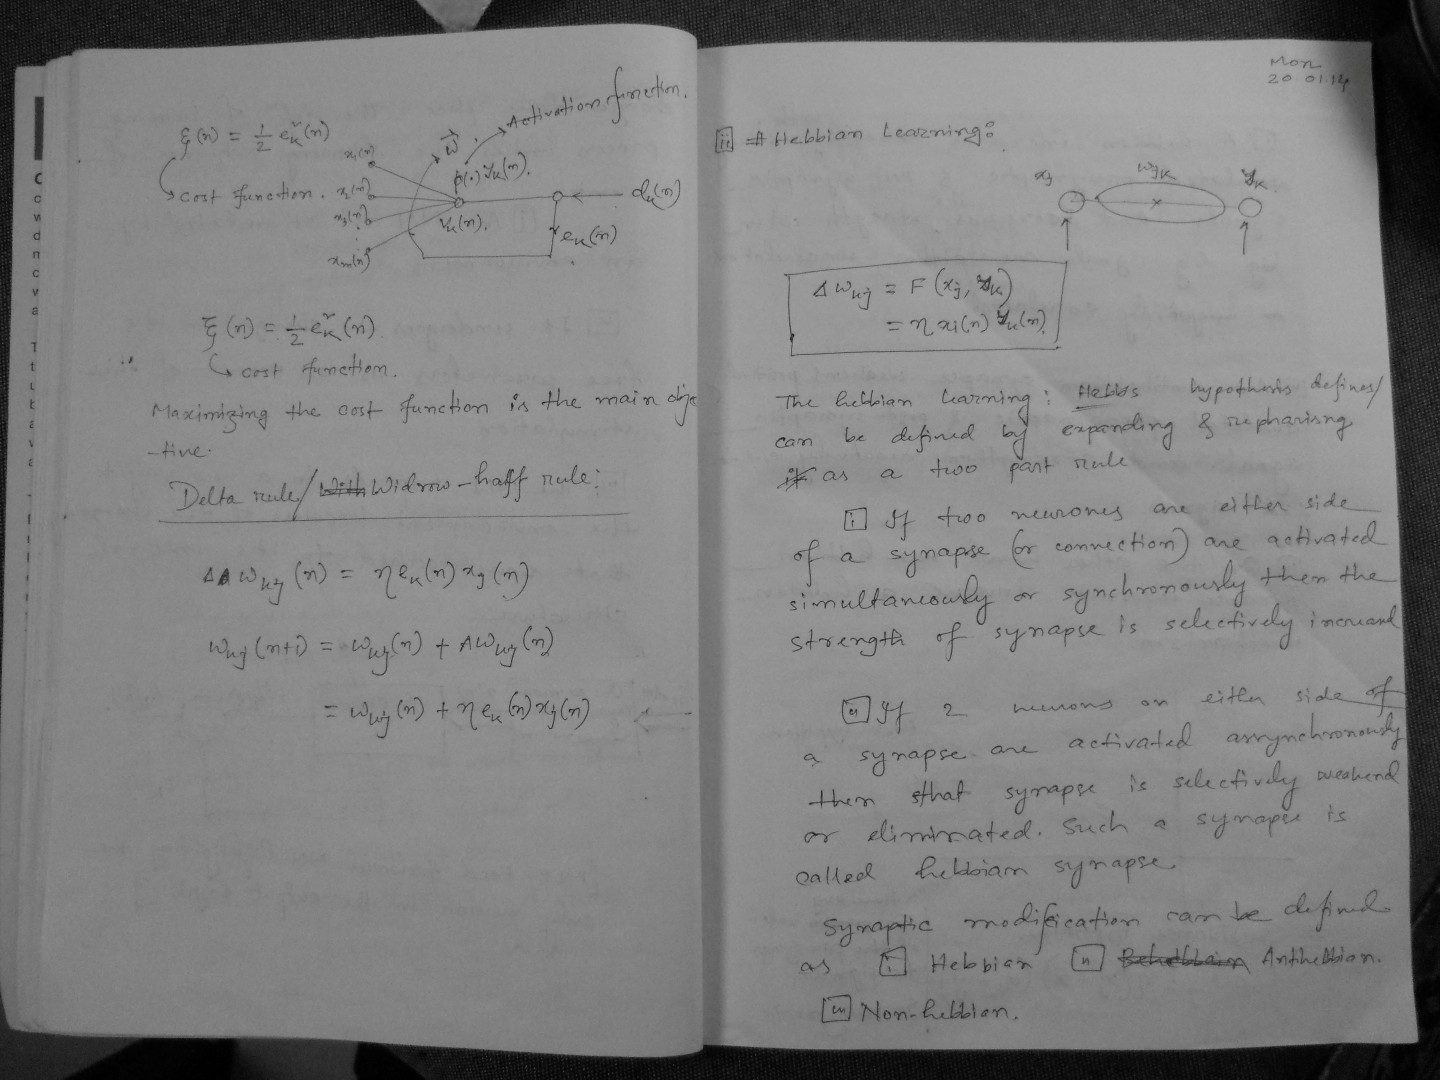 ξ(n) = 1/2 e_k²(n)
→ cost function.
x1(n)
x2(n)
x3(n)
xm(n)
w⃗
Activation function.
φ(.) y_k(n).
v_k(n).
d_k(n)
e_k(n)
ξ(n) = 1/2 e_k²(n)
→ cost function.
Maximizing the cost function is the main objec
-tive.
Delta rule/ Widrow-hoff rule:
Δ w_kj (n) = η e_k(n) x_j(n)
w_kj (n+1) = w_kj(n) + Δw_kj(n)
= w_kj(n) + η e_k(n) x_j(n)
Mon
20.01.14
ii # Hebbian Learning:
x_j
w_jk
y_k
Δ w_kj = F (x_j, y_k)
= η x_i(n) y_k(n)
The hebbian learning: Hebbs hypothesis defines/
can be defined by expanding & repharisng
it as a two part rule
i If two neurones are either side
of a synapse (or connection) are activated
simultaneously or synchronously then the
strength of synapse is selectively increased
ii If 2 neurons on either side of
a synapse are activated assynchronously
then that synapse is selectively weakend
or eliminated. Such a synapse is
called hebbian synapse.
Synaptic modification can be defined
as i Hebbian ii Antihebbian.
iii Non-hebbian.